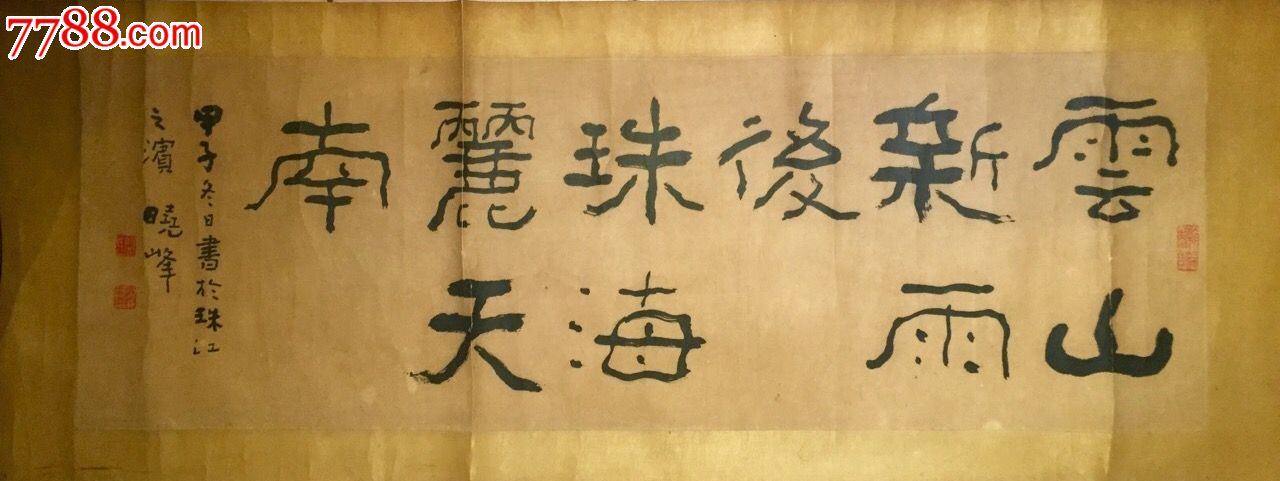 7788.com
雲山
新雨
後
珠海
麗天
南
甲子冬日書於珠江
之濱 曉峰